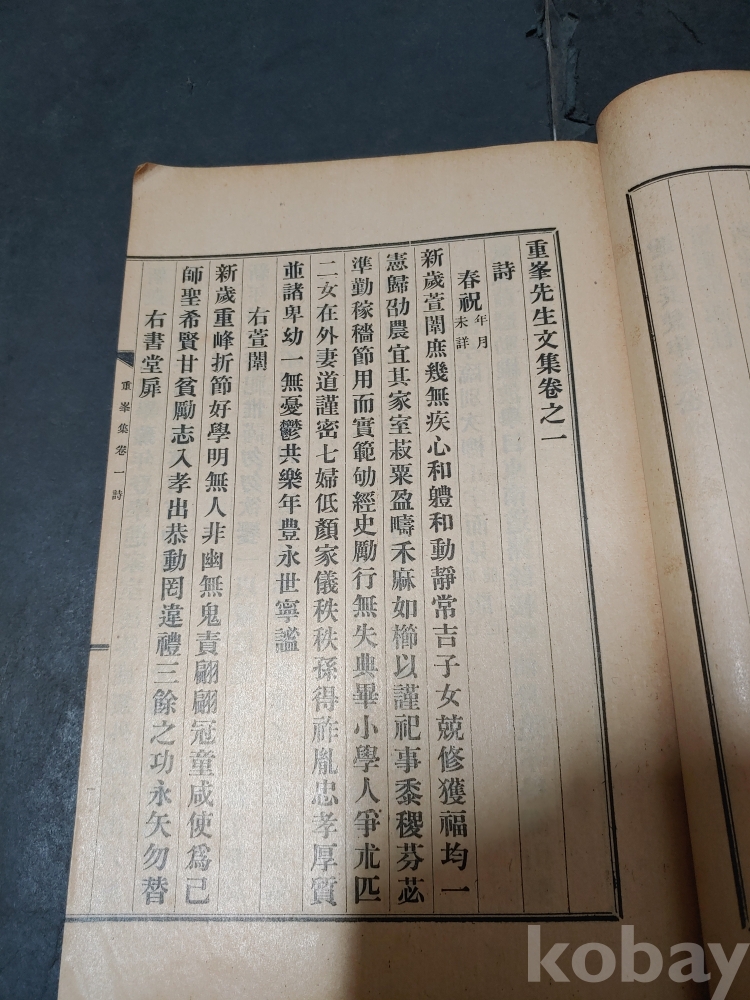 重峯先生文集卷之一
詩
春祝 年月未詳
新歲萱闈庶幾無疾心和軆和動靜常吉子女兢修獲福均一
憲歸劭農宜其家室菽粟盈疇禾麻如櫛以謹祀事黍稷芬苾
準勤稼穡節用而實範劬經史勵行無失典畢小學人爭朮匹
二女在外妻道謹密七婦低顏家儀秩秩孫得祚胤忠孝厚質
並諸卑幼一無憂鬱共樂年豊永世寧謐
右萱闈
新歲重峰折節好學明無人非幽無鬼責翩翩冠童咸使爲己
師聖希賢甘貧勵志入孝出恭動罔違禮三餘之功永矢勿替
右書堂扉
重峯集卷一 詩
kobay